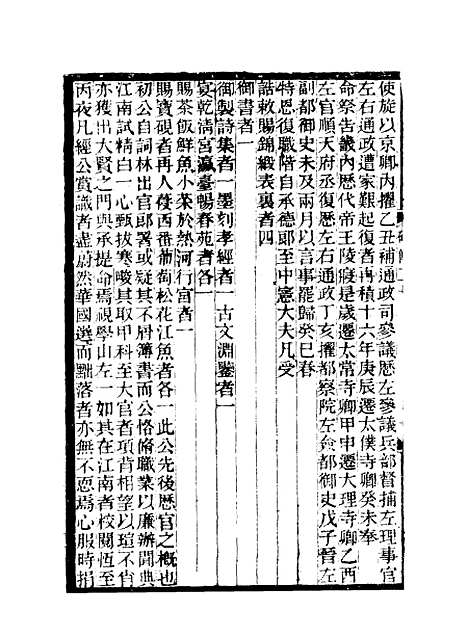 使旋以京卿內擢乙丑補通政司參議歷左參議兵部督捕左理事官
左右通政遭家艱起復者再積十六年庚辰遷太僕寺卿癸未奉
命祭告畿內歷代帝王陵寢是歲遷太常寺卿甲申遷大理寺卿乙酉
左官順天府丞復歷左右通政丁亥擢都察院左僉都御史戊子晉左
副都御史未及兩月以言事罷歸癸巳春
特恩復職階自承德郎至中憲大夫凡受
誥敕賜錦緞表裏者四
御書者一
御製詩集者一墨刻孝經者一古文淵鑒者一
宴乾淸宮瀛臺暢春苑者各一
賜茶飯鮮魚小菜於熱河行宮者一
賜寶硯者再人葠西番葡萄松花江魚者各一此公先後歷官之槪也
初公自詞林出官郎署或疑其不屑簿書而公恪脩職業以廉辦聞典
江南試精白一心甄拔寒畯其取甲科至大官者項背相望以瑄不肖
亦獲出大賢之門與承提命焉視學山左一如其在江南者校閱恆至
丙夜凡經公賞識者盡蔚然華國選而黜落者亦無不恧焉心服時捐